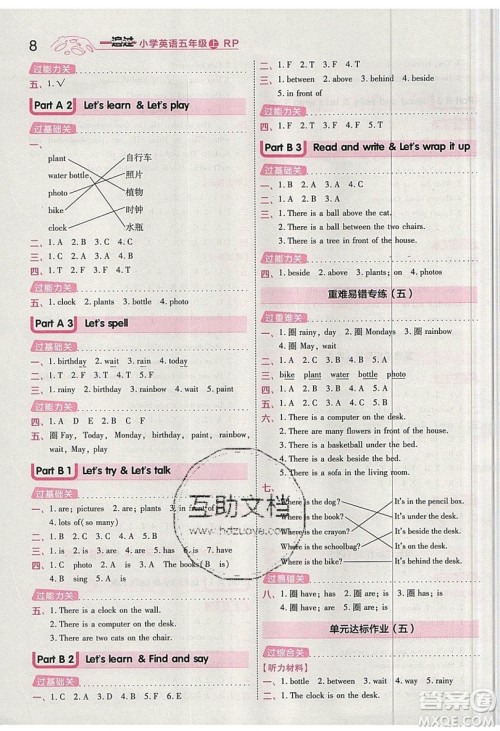 8 一遍过 小学英语五年级 上 RP
过能力关
五、1. √
Part A 2 Let's learn & Let's play
过基础关
一、
plant 自行车
water bottle 照片
photo 植物
bike 时钟
clock 水瓶
二、1. A 2. B 3. D 4. C
三、1. B 2. A 3. A 4. B 5. A
四、1. T 2. F 3. F 4. F 5. T
过能力关
五、1. clock 2. plants 3. bottle 4. photo
Part A 3 Let's spell
过基础关
一、1. birthday 2. wait 3. rain 4. today
二、1. T 2. F 3. T 4. T
三、1. rainy 2. birthday 3. rainbow 4. paint
过能力关
四、A D A A D A
五、圈 Fay, Today, Monday, birthday, paint,
rainy, day, may, way, rainbow
Part B 1 Let's try & Let's talk
过基础关
一、1. are; pictures 2. plants 3. in front of
4. lots of (so many)
二、1. B 2. A 3. B 4. A 5. B
三、1. is 2. is 3. are 4. is 5. have
四、1. B 2. D 3. C 4. A
过能力关
五、1. There is a clock on the wall.
2. There is a computer on the desk.
3. There are two cats on the chair.
Part B 2 Let's learn & Find and say
过基础关
一、1. D 2. A 3. C 4. B
二、1. F 2. T 3. F 4. T
三、1. between 2. above 3. behind 4. beside
5. in front of
过能力关
四、1. F 2. T 3. F 4. T
Part B 3 Read and write & Let's wrap it up
过基础关
一、1. B 2. A 3. A 4. A 5. A
二、1. C 2. A 3. B 4. B 5. C
三、1. There is a ball above the cat.
2. There is a ball between the two chairs.
3. There is a tree in front of the house.
过能力关
四、1. beside 2. above 3. plants; on 4. photos
重难易错专练（五）
过重难关
一、1. 圈 rainy, day 2. 圈 Mondays 3. 圈 rainbow
4. 圈 May, wait
二、1. A 2. B 3. B 4. B 5. A
三、bike plant water bottle photo
四、1. B 2. D 3. A 4. C
五、1. A 2. A 3. C 4. A 5. C
六、1. There is a computer on the desk.
2. There are flowers on the desk.
3. There is a basketball under the bed.
4. There is a bottle on the desk.
5. There is a sofa in the living room.
七、
Where is the dog? It's in the pencil box.
Where is the book? It's under the chair.
Where is the crayon? It's beside the desk.
Where is the schoolbag? It's on the desk.
Where is the bike? It's behind the door.
过易错关
八、1. 圈 have; are 2. 圈 have; has 3. 圈 is; are
4. 圈 in; on
单元达标作业（五）
过综合关
【听力材料】
一、1. birthday 2. rainbow 3. wait 4. way 5. rainy
二、1. There are so many plants here.
互助文档
www.hdzuoye.com
答案圈
MXQE.COM